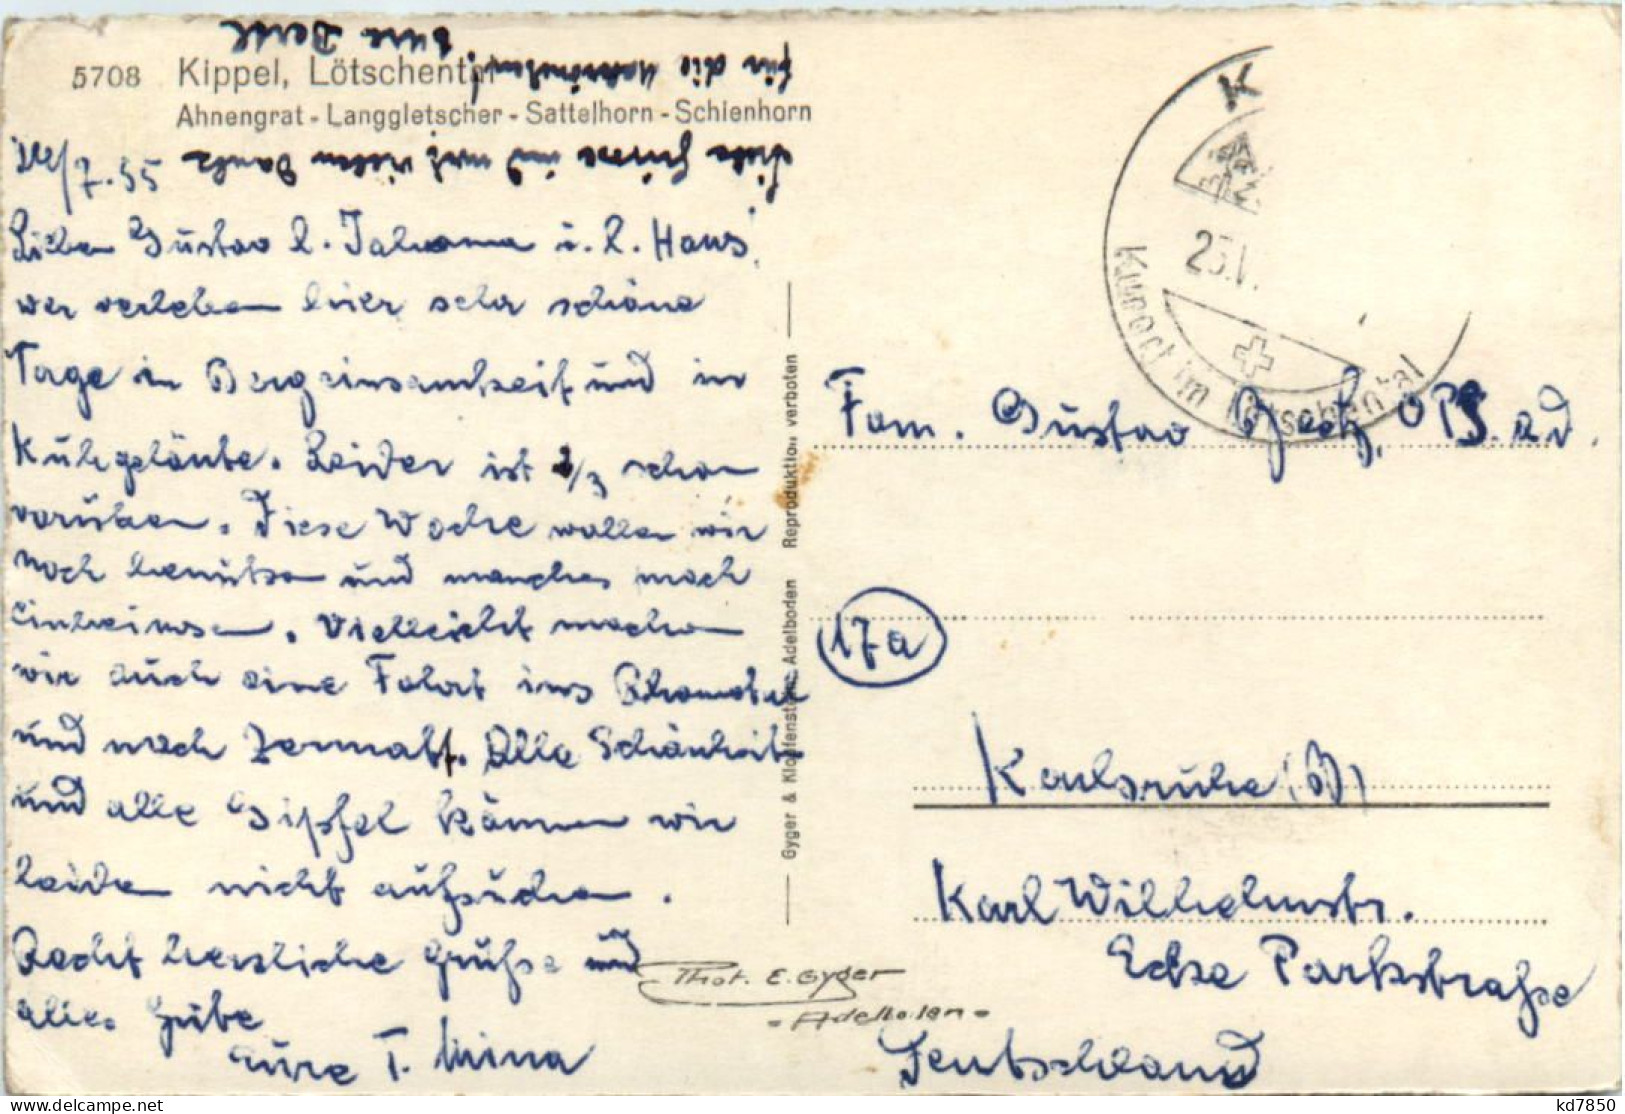 5708 Kippel, Lötschental
Ahnengrat - Langgletscher - Sattelhorn - Schienhorn
/7.55
Lieber Gustav l. Johanna u. l. Hans!
wir verleben hier sehr schöne
Tage in Bergeinsamkeit und in
Kuhgeläute. Leider ist 2/3 schon
vorüber. Diese Woche wollen wir
noch benutzen und manches noch
Einheimsen. Vielleicht machen
wir auch eine Fahrt ins Rhonetal
und nach Zermatt. Alle Schönheit
und alle Gipfel können wir
leider nicht aufsuchen.
Recht herzliche Grüße und
alles Gute
Eure T. Mina
Liebe Grüsse und noch vielen Dank
für die
Eure
Gyger & Klopfenstein, Adelboden Reproduktion verboten
Phot. E. Gyger
- Adelboden -
K
25.V
Kurort im Lötschental
Fam. Gustav
17a
Karlsruhe (B)
Karl Wilhelmstr.
Ecke Parkstraße
Deutschland
kd7850